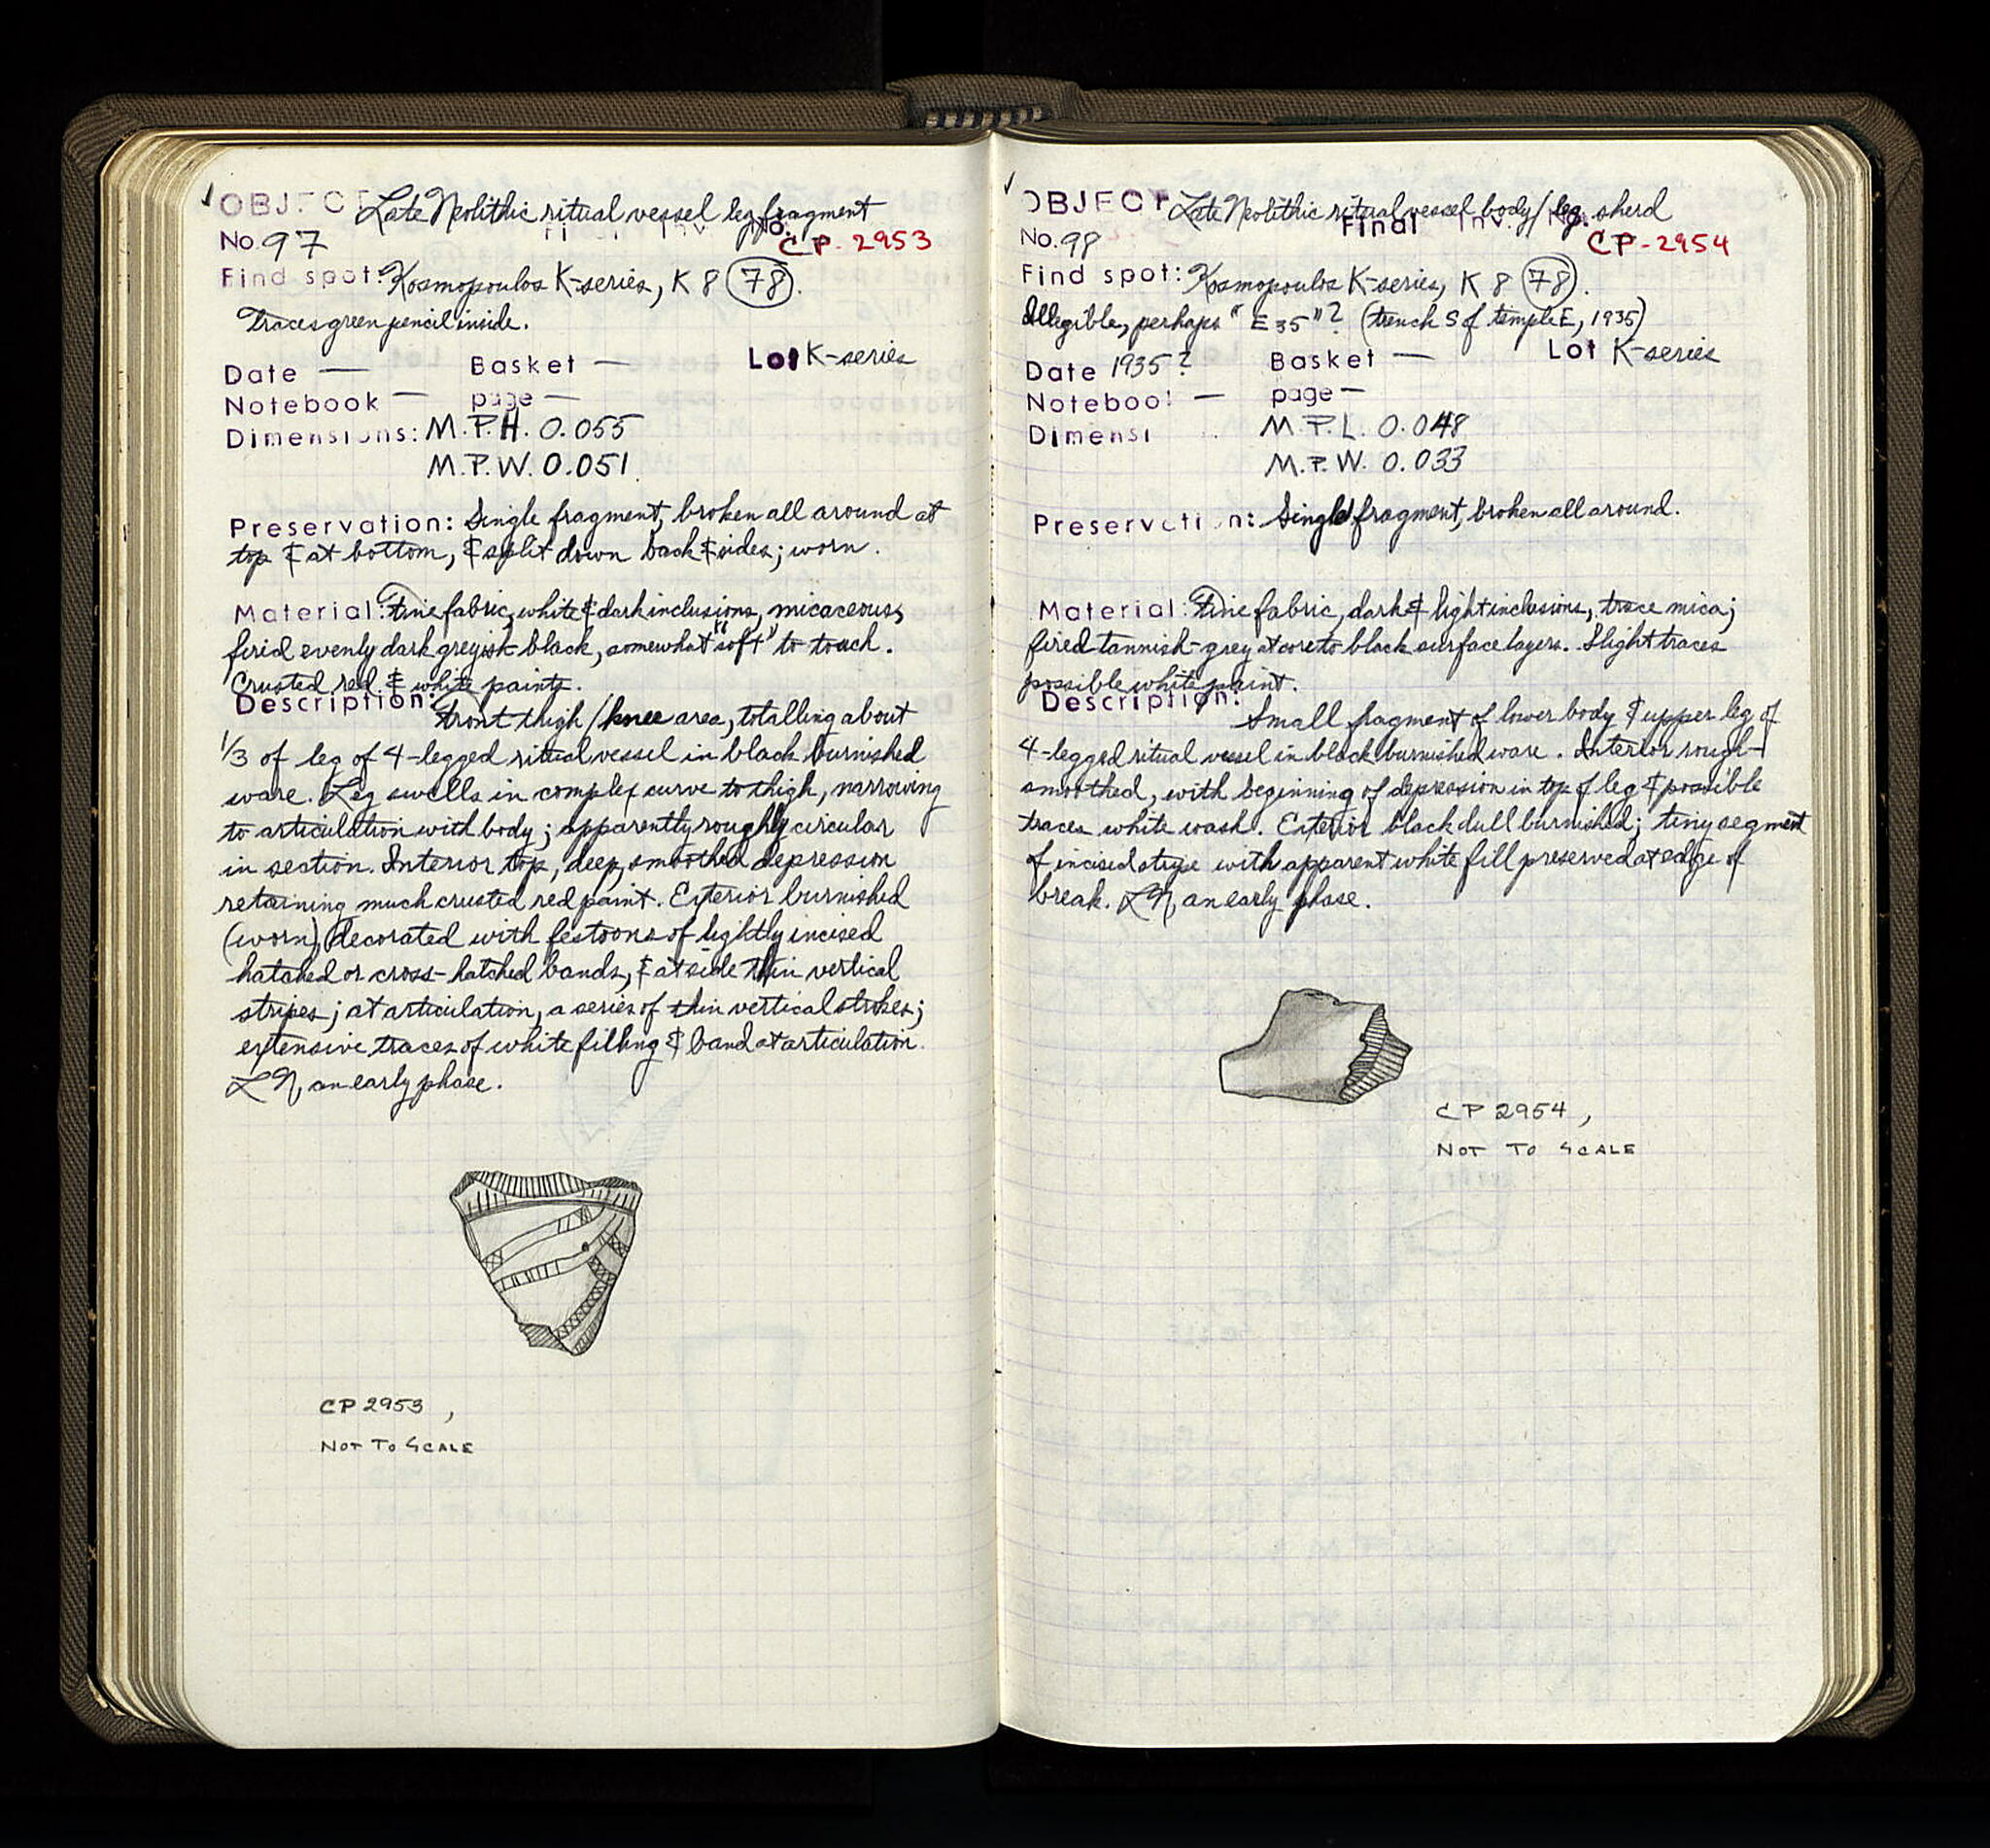 ✓ OBJECT Late Neolithic ritual vessel leg fragment
No. 97 Final Inv. No. CP-2953
Find spot: Kosmopoulos K-series, K 8 (78).
Traces green pencil inside.
Date — Basket — Lot K-series
Notebook — page —
Dimensions: M.P.H. 0.055
M.P.W. 0.051.
Preservation: Single fragment, broken all around at
top & at bottom, & split down back & sides; worn.
Material: Fine fabric, white & dark inclusions, micaceous,
fired evenly dark greyish black, somewhat "soft" to touch.
Crusted red & white paints.
Description: Front thigh/knee area, totalling about
1/3 of leg of 4-legged ritual vessel in black burnished
ware. Leg swells in complex curve to thigh, narrowing
to articulation with body; apparently roughly circular
in section. Interior top, deep, smoothed depression
retaining much crusted red paint. Exterior burnished
(worn), decorated with festoons of lightly incised
hatched or cross-hatched bands, & at side thin vertical
stripes; at articulation, a series of thin vertical strokes;
extensive traces of white filling & band at articulation.
LN, an early phase.
CP 2953,
NOT TO SCALE
✓ OBJECT Late Neolithic ritual vessel body/leg sherd
No. 98 Final Inv. No. CP-2954
Find spot: Kosmopoulos K-series, K 8 (78).
Illegible, perhaps "E 35"? (trench S of temple E, 1935)
Date 1935? Basket — Lot K-series
Notebook — page —
Dimensi M.P.L. 0.048
M.P.W. 0.033
Preservation: Single fragment, broken all around.
Material: Fine fabric, dark & light inclusions, trace mica;
fired tannish-grey at core to black surface layers. Slight traces
possible white paint.
Description: Small fragment of lower body & upper leg of
4-legged ritual vessel in black burnished ware. Interior rough-
smoothed, with beginning of depression in top of leg & possible
traces white wash. Exterior black dull burnished; tiny segment
of incised stripe with apparent white fill preserved at edge of
break. LN, an early phase.
CP 2954,
NOT TO SCALE